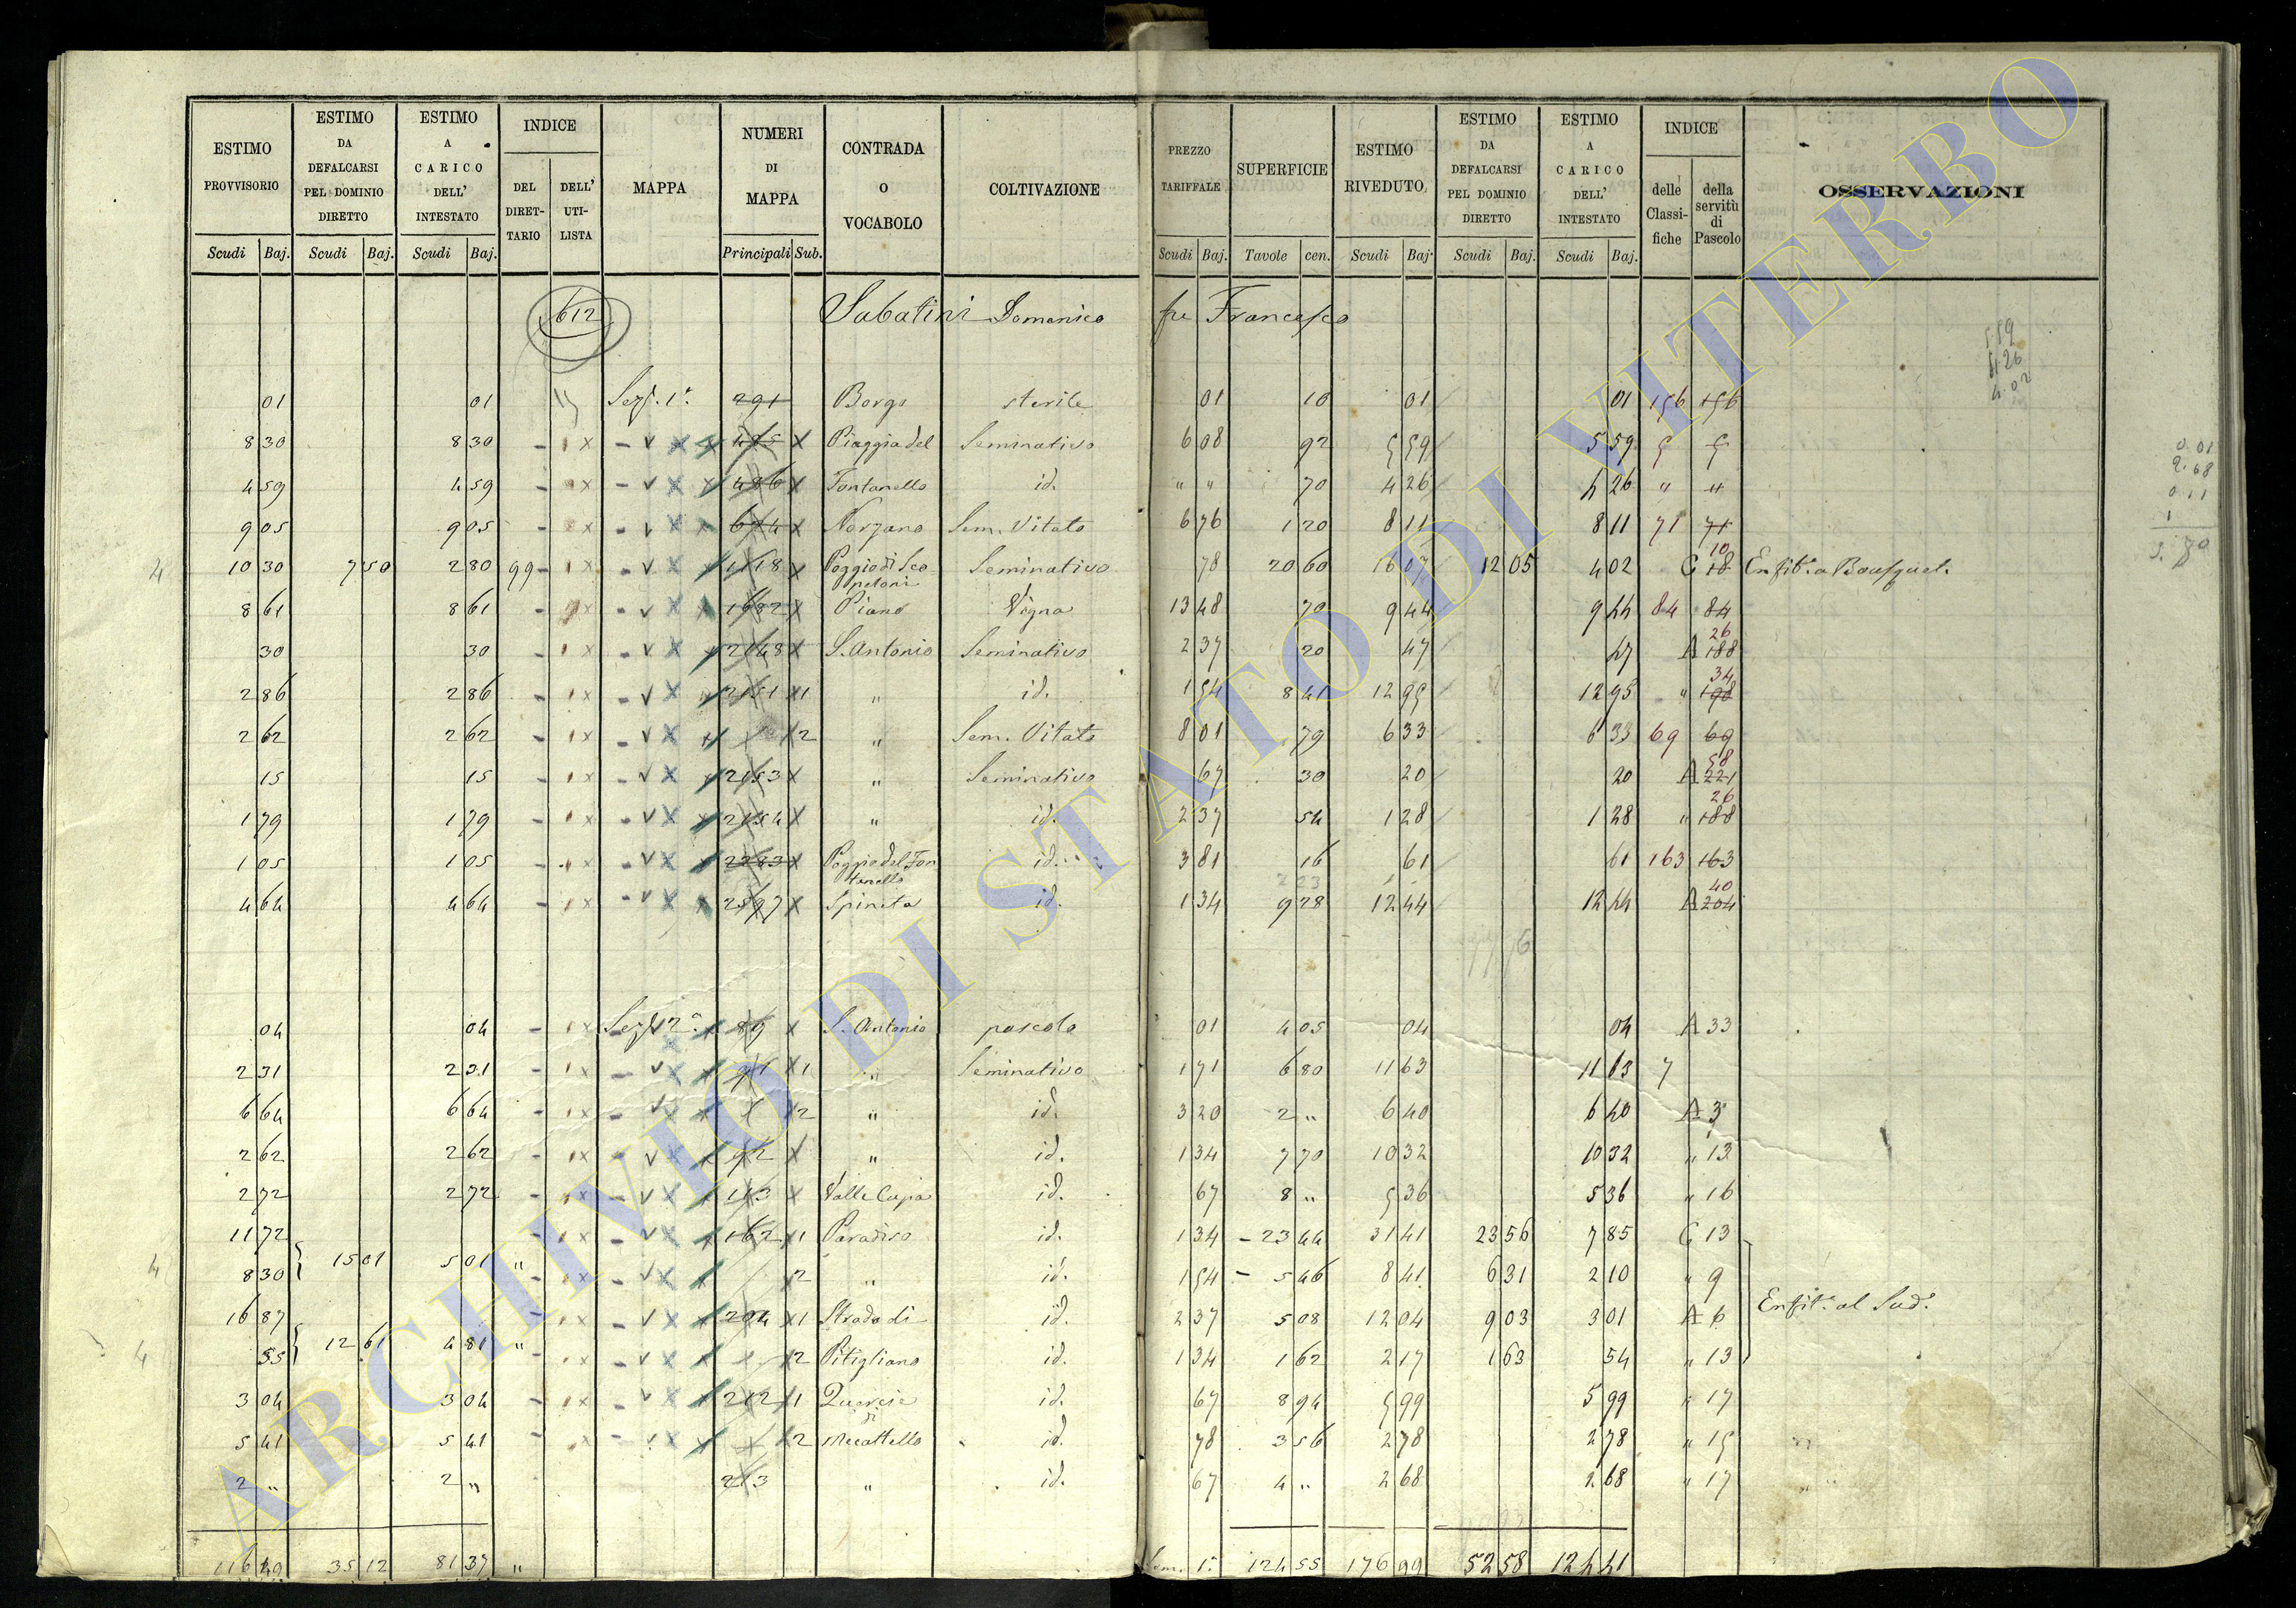 ESTIMO PROVVISORIO | ESTIMO DA DEFALCARSI PEL DOMINIO DIRETTO | ESTIMO A CARICO DELL' INTESTATO | INDICE DEL DIRETTARIO | DELL' UTILISTA | MAPPA | NUMERI DI MAPPA | CONTRADA O VOCABOLO | COLTIVAZIONE | PREZZO TARIFFALE | SUPERFICIE | ESTIMO RIVEDUTO | ESTIMO DA DEFALCARSI PEL DOMINIO DIRETTO | ESTIMO A CARICO DELL' INTESTATO | INDICE delle Classifiche | della servitù di Pascolo | OSSERVAZIONI
Scudi Baj. | Scudi Baj. | Scudi Baj. | Principali Sub. | Scudi Baj. | Tavole cen. | Scudi Baj. | Scudi Baj. | Scudi Baj.
612 Sabatini Domenico fu Francesco
01 01 Seze. 1a. 291 Borgo sterile 01 10 01 01 156 156
8 30 8 30 485 Piaggia del Seminativo 6 08 92 5 59 5 59 5 5
4 59 4 59 486 Fontanello id. " " 70 4 26 4 26 " "
9 05 9 05 674 Norzano Sem. Vitato 6 76 1 20 8 11 8 11 71 71
4 10 30 7 50 2 80 99 1118 Poggio di Sco- Seminativo 78 20 60 16 07 12 05 4 02 C 18 10 Enfit. a Bousquet.
8 61 8 61 1682 Piano Vigna 13 48 70 9 44 9 44 84 84
30 30 2148 S. Antonio Seminativo 2 37 20 47 47 A 188 26
2 86 2 86 2151 1 " id. 1 54 8 41 12 95 12 95 " 190 34
2 62 2 62 2 " Sem. Vitato 8 01 79 6 33 6 33 69 69
15 15 2153 " Seminativo 67 30 20 20 A 221 58
1 79 1 79 2154 " id. 2 37 54 1 28 1 28 " 188 26
1 05 1 05 2283 Poggio del Fontanello id. 3 81 16 61 61 163 163
4 64 4 64 2597 Spineta id. 1 34 9 28 12 44 12 44 A 204 40
04 04 Sez. 2a. 89 S. Antonio pascolo 01 4 05 04 04 A 33
2 31 2 31 91 1 " Seminativo 1 71 6 80 11 63 11 63 7
6 64 6 64 2 " id. 3 20 2 " 6 40 6 40 A 3
2 62 2 62 92 " id. 1 34 7 70 10 32 10 32 " 13
2 72 2 72 113 Valle Cupa id. 67 8 " 5 36 5 36 " 16
11 72 162 1 Paradiso id. 1 34 23 44 31 41 23 56 7 85 C 13
4 8 30 15 01 5 01 " 2 " id. 1 54 5 46 8 41 6 31 2 10 " 9
16 87 204 1 Strada di id. 2 37 5 08 12 04 9 03 3 01 A 6 Enfit. al Sud.
4 55 12 61 4 81 " 2 Pitigliano id. 1 34 1 62 2 17 1 63 54 " 13
3 04 3 04 212 1 Quercie id. 67 8 94 5 99 5 99 " 17
5 41 5 41 2 di Mecattello id. 78 3 56 2 78 2 78 " 15
2 " 2 " 213 " id. 67 4 " 2 68 2 68 " 17
116 49 35 12 81 37 " Som. 1a. 124 55 176 99 52 58 124 41
5 59
4 26
4.02
0.01
2.68
0.11
ARCHIVIO DI STATO DI VITERBO